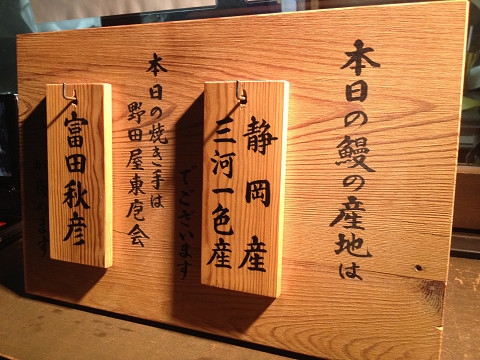 本日の鰻の産地は
静岡産
三河一色産
でございます
本日の焼き手は
野田屋東庖会
富田秋彦